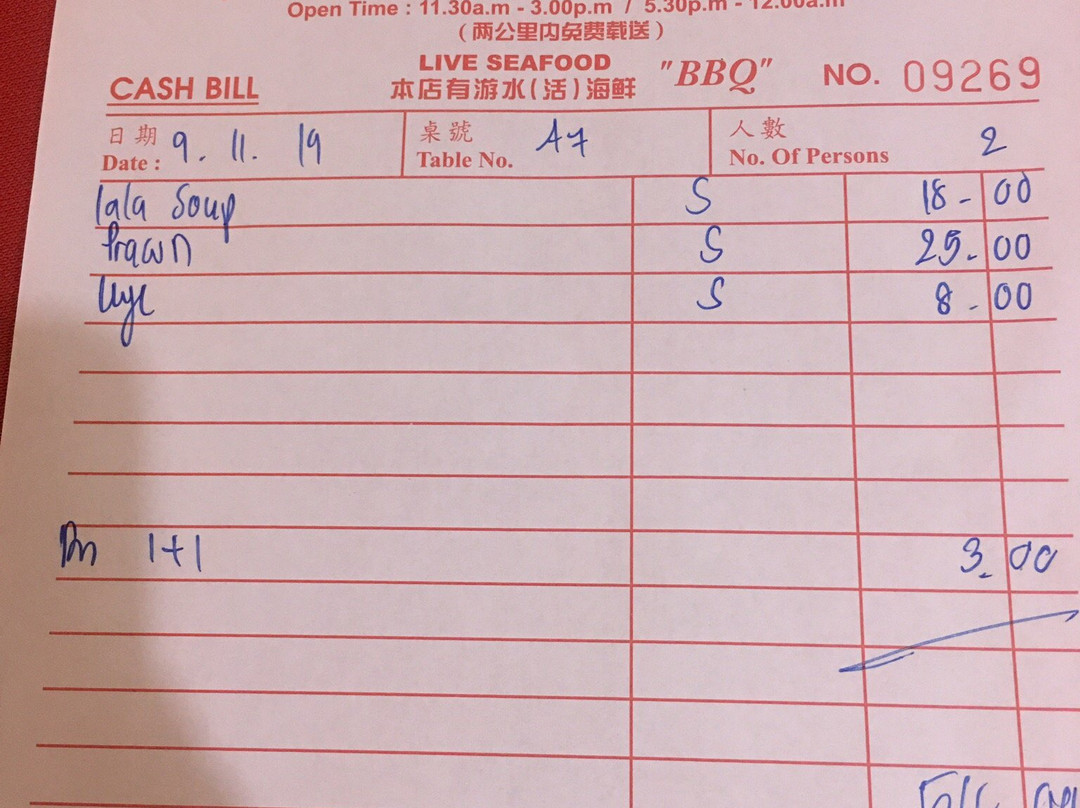 Open Time : 11.30a.m - 3.00p.m / 5.30p.m - 12.00a.m
(两公里内免费载送)
CASH BILL
LIVE SEAFOOD
本店有游水(活)海鲜
"BBQ"
NO. 09269
日期 Date : 9. 11. 19
桌號 Table No. A7
人數 No. Of Persons 2
lala Soup S 18-00
Prawn S 25.00
S 8-00
1+1 3.00